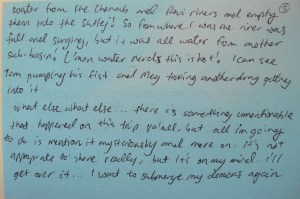 water from the Chenab and Ravi rivers and empty
them into the Sutlej! So from where I was one river was
full and surging, but it was all water from another
sub-basin! C'mon water nerds this is hot! I can see
Tom pumping his fist and Meg taking another drag getting
into it.
What else what else... there is something unmentionable
that happened on this trip ya'all, but all I'm going
to do is mention it mysteriously and move on. It's not
appropriate to share really, but it's on my mind. I'll
get over it... I want to submerge my demons again.
5